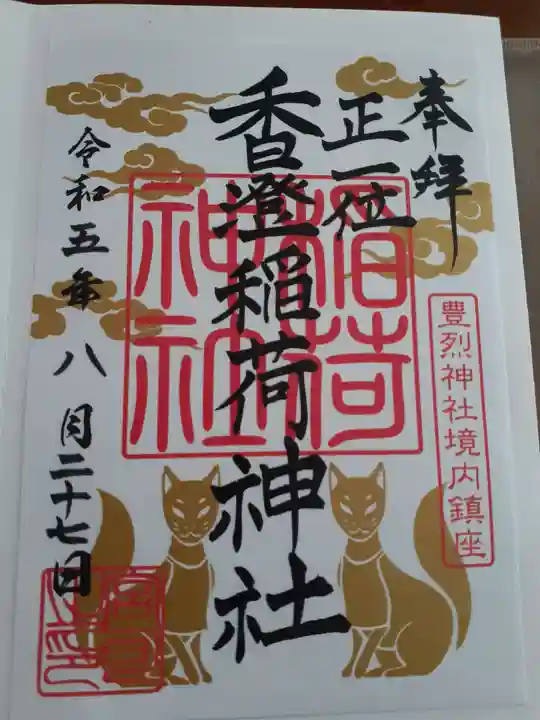 奉拝
豊烈神社境内鎮座
正一位
香澄稲荷神社
稲荷
神社
令和五年八月二十七日